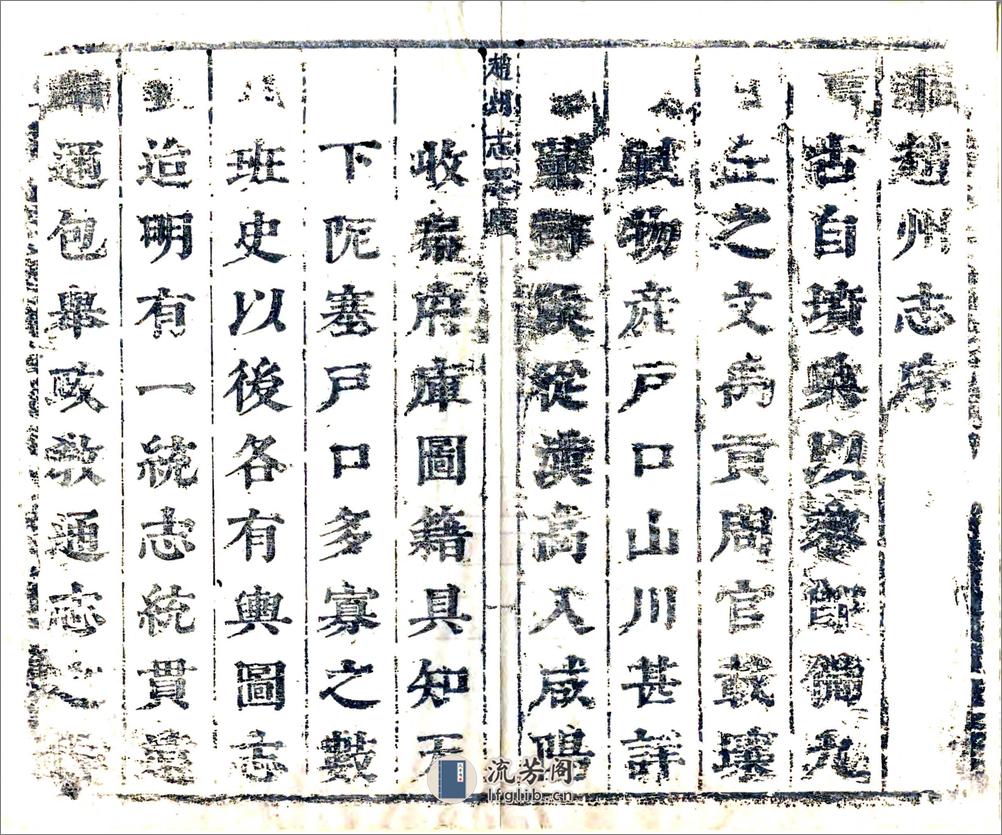 趙州志序
古自墳典以獨九
之文禹貢周官載壤
賦物産戶口山川甚詳
蕭酇侯從漢高入咸陽
趙州志
收秦府庫圖籍具知天
下阨塞戶口多寡之數
班史以後各有輿圖志
迨明有一統志統貫遠
邇包舉政教通志之
流芳阁
lfglib.cn